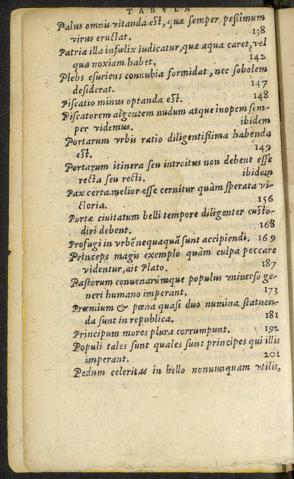 TABVLA
Palus omnis vitanda est, quæ semper pessimum
virus eructat. 138
Patria illa infœlix iudicatur, quæ aqua caret, vel
qua noxiam habet. 142
Plebs esuriens connubia formidat, nec sobolem
desiderat. 147
Piscatio minus optanda est. 148
Piscatorem algentem nudum atque inopem sem-
per videmus. ibidem
Portarum vrbis ratio diligentissima habenda
est. 149
Portarum itinera seu introitus non debent esse
recta seu recti. ibidem
Pax certa melior esse cernitur quàm sperata vi-
ctoria. 156
Portæ ciuitatum belli tempore diligenter custo-
diri debent. 168
Profugi in vrbē nequaquā sunt accipiendi. 169
Princeps magis exemplo quàm culpa peccare
videntur, ait Plato. 187
Pastorum conuenarúmque populus vniuerso ge-
neri humano imperant. 173
Præmium & pœna quasi duo numina statuen-
da sunt in republica. 181
Principum mores plura corrumpunt. 192
Populi tales sunt quales sunt principes qui illis
imperant. 201
Pedum celeritas in bello nonnunquam vtilis,